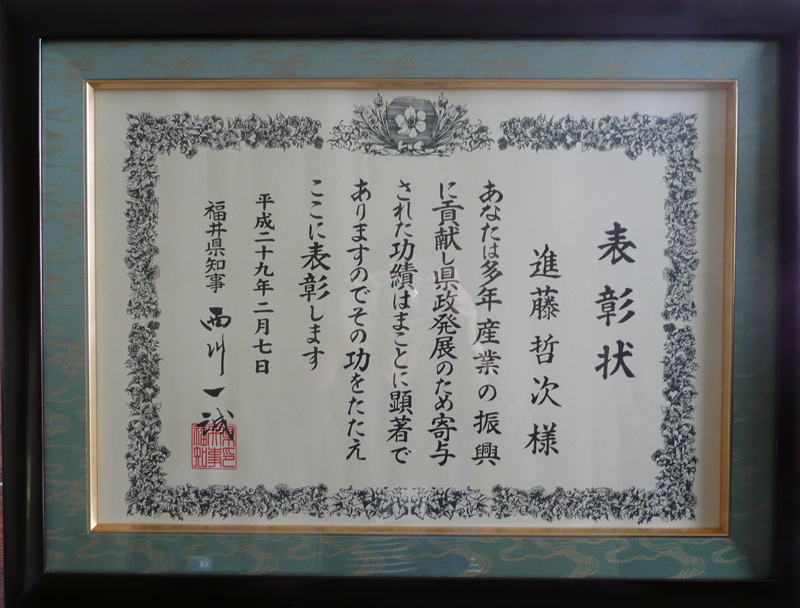 表彰状
進藤哲次様
あなたは多年産業の振興
に貢献し県政発展のため寄与
された功績はまことに顕著で
ありますのでその功をたたえ
ここに表彰します
平成二十九年二月七日
福井県知事 西川一誠